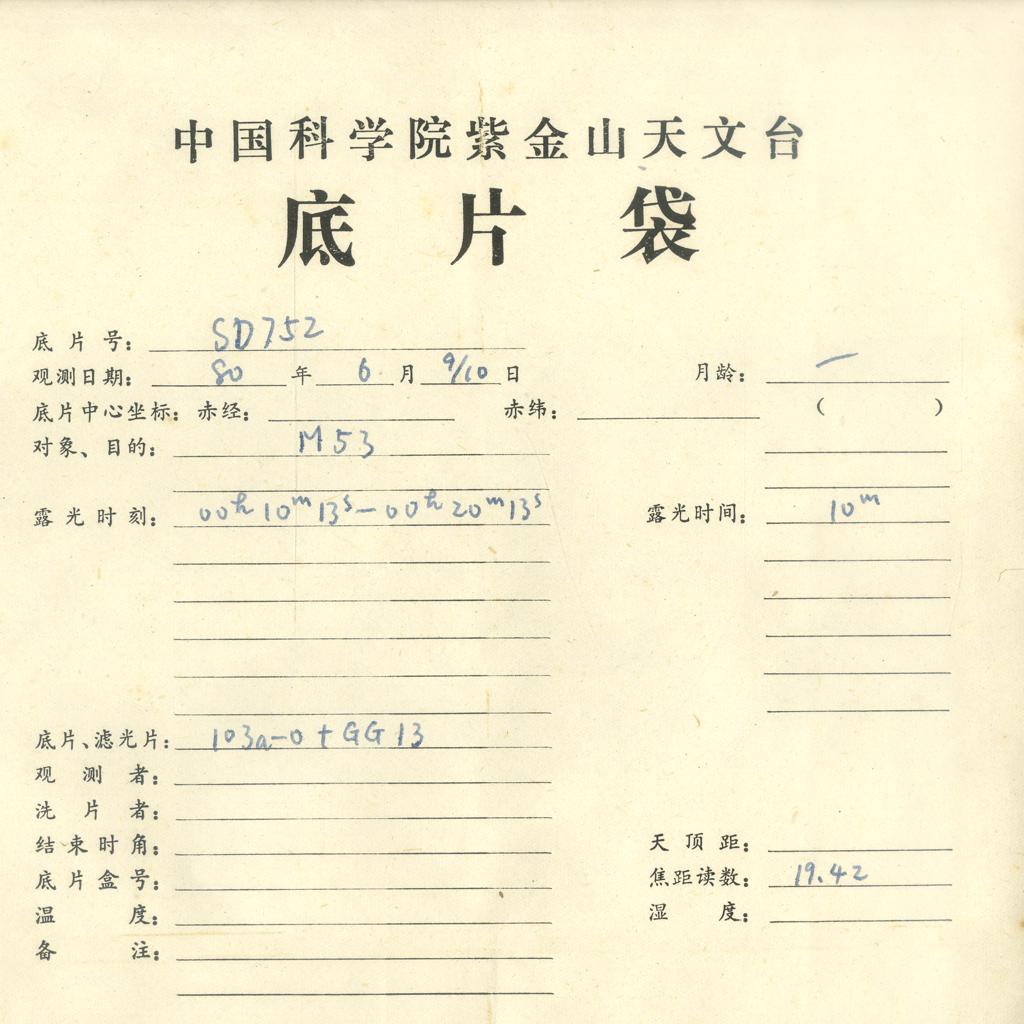 中国科学院紫金山天文台
底片袋
底片号： SD752
观测日期： 80 年 6 月 9/10 日 月龄： —
底片中心坐标：赤经： 赤纬： （ ）
对象、目的： M53
露光时刻： 00ʰ10ᵐ13ˢ—00ʰ20ᵐ13ˢ 露光时间： 10ᵐ
底片、滤光片： 103a-0+GG13
观测者：
洗片者：
结束时角： 天顶距：
底片盒号： 焦距读数： 19.42
温度： 湿度：
备注：